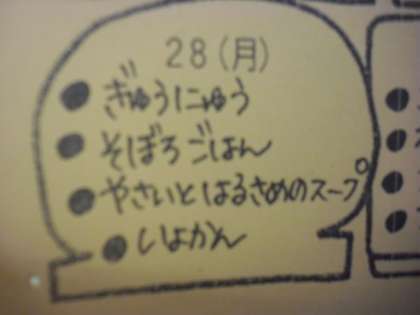 28(月)
ぎゅうにゅう
そぼろごはん
やさいとはるさめのスープ
いよかん